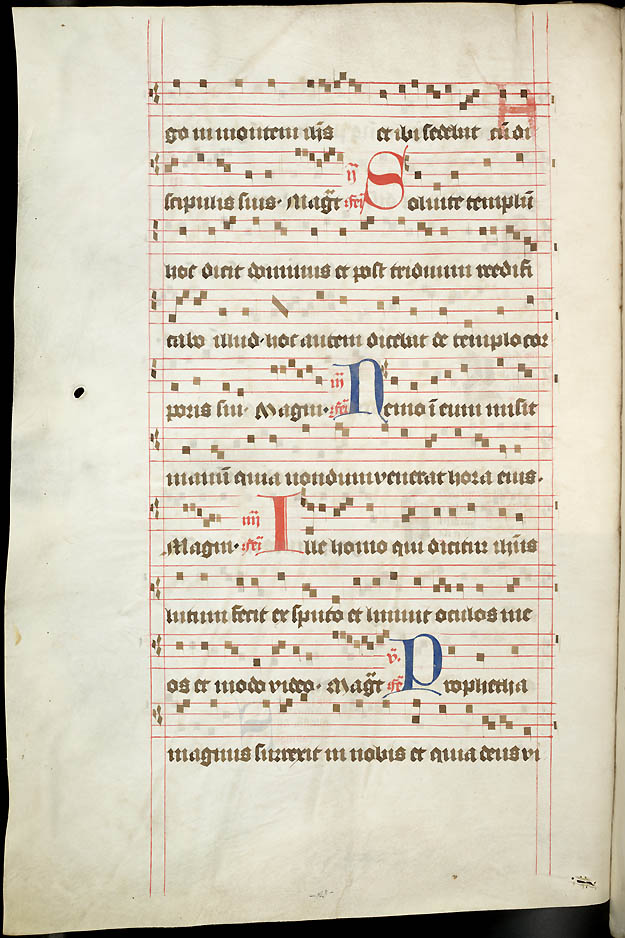 go in montem ih̅s et ibi sedebat cu̅ di
scipulis suis. Mag̅t ij fe̅i Soluite templu̅
hoc dicit dominus et post triduum reedifi
cabo illud. hoc autem dicebat de templo cor
poris sui. Magni. iij fe̅i Nemo i̅ eum misit
manu̅ quia nondum venerat hora eius.
Magni. iiij fe̅i Ille homo qui dicitur ih̅us
lutum fecit ex sputo et liniuit oculos me
os et modo video. Mag̅t v. fe̅ Propheta
magnus surrexit in nobis et quia deus vi